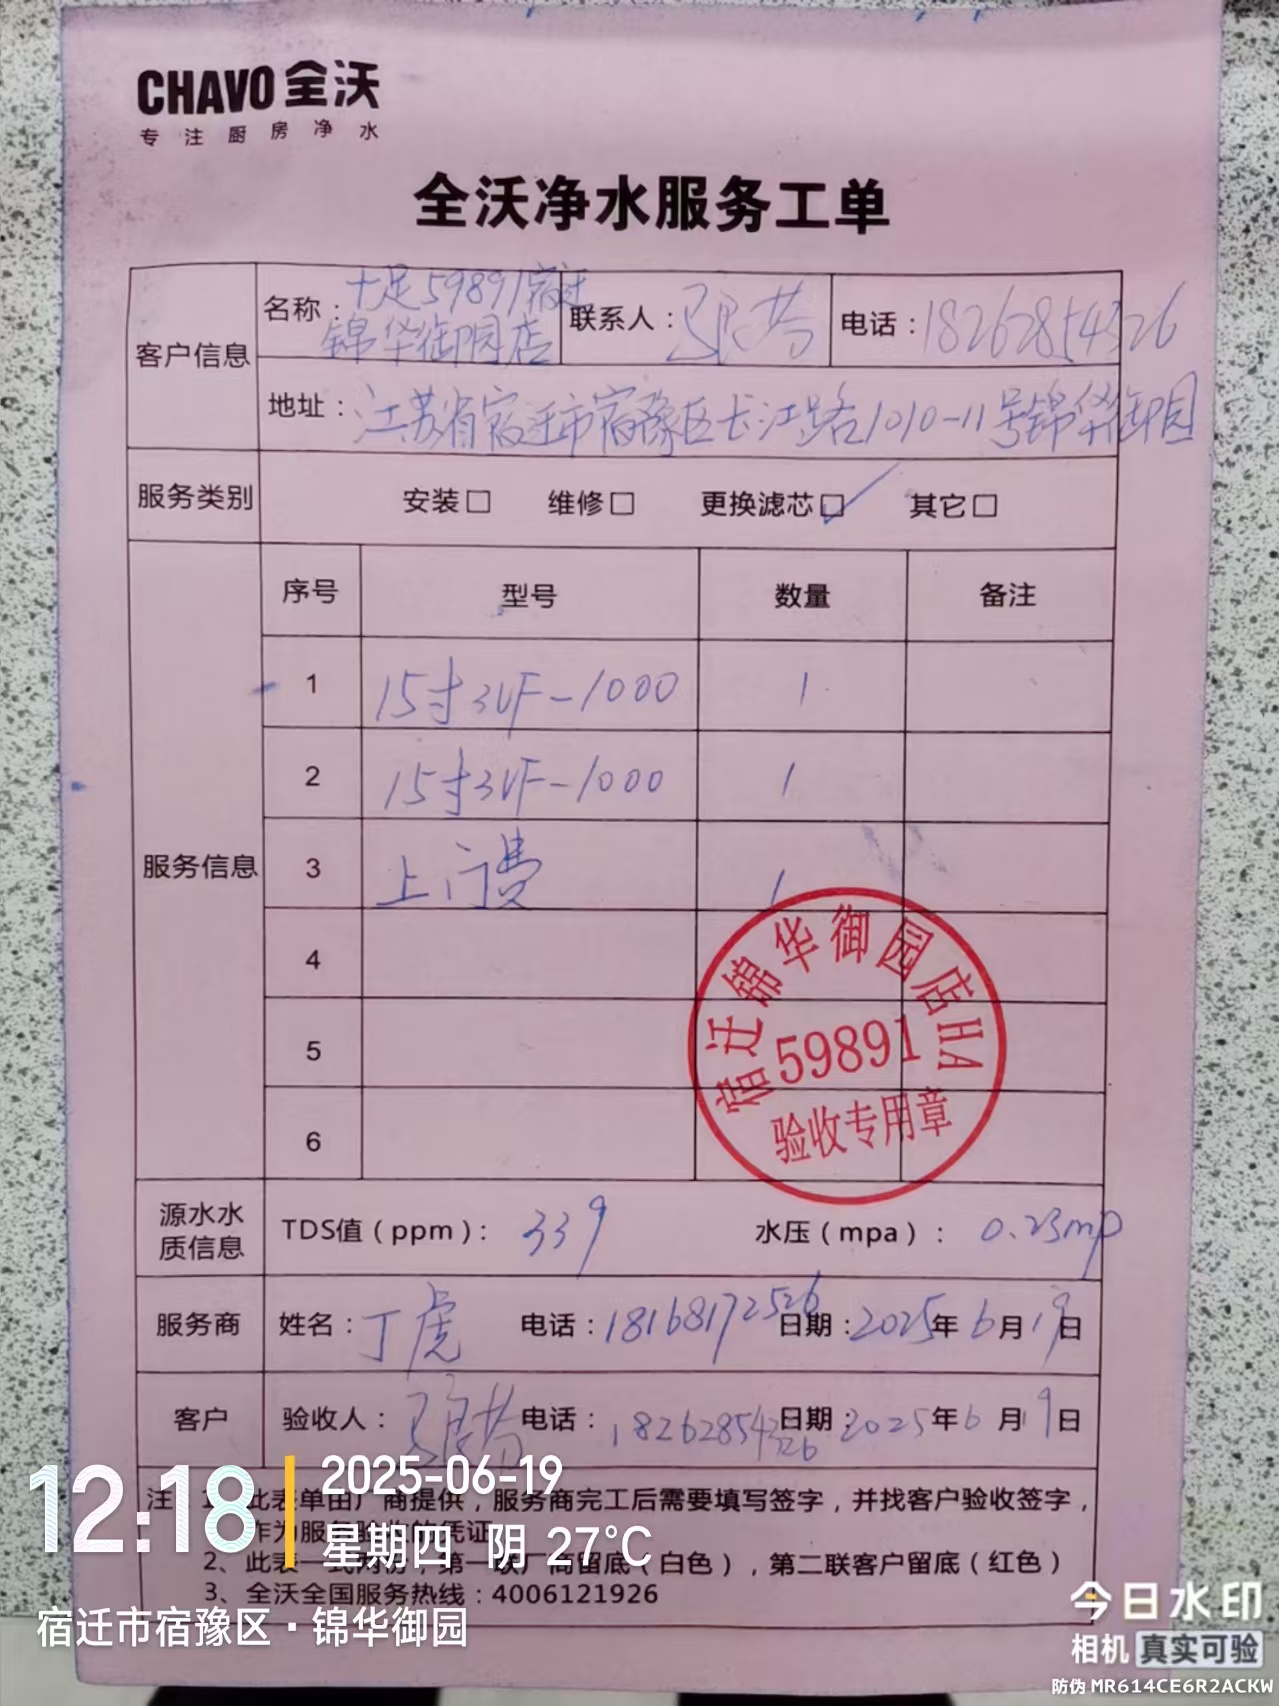 CHAVO 全沃
专注厨房净水
全沃净水服务工单
客户信息
名称：十足59891宿迁
锦华御园店
联系人：
电话：18262854326
地址：江苏省宿迁市宿豫区长江路1010-11号锦华御园
服务类别 安装□ 维修□ 更换滤芯□✓ 其它□
服务信息
序号 型号 数量 备注
1 15寸3VF-1000 1
2 15寸3VF-1000 1
3 上门费 1
4
5
6
宿迁锦华御园店HA
59891
验收专用章
源水水
质信息
TDS值（ppm）：339 水压（mpa）：0.23mp
服务商 姓名：丁虎 电话：18168172526 日期：2025年6月19日
客户 验收人： 电话：18262854326 日期：2025年6月19日
注：1、此表单由厂商提供，服务商完工后需要填写签字，并找客户验收签字，
作为服务验收的凭证
2、此表一式两份，第一联厂商留底（白色），第二联客户留底（红色）
3、全沃全国服务热线：4006121926
12:18
2025-06-19
星期四 阴 27°C
宿迁市宿豫区·锦华御园
今日水印
相机 真实可验
防伪 MR614CE6R2ACKW